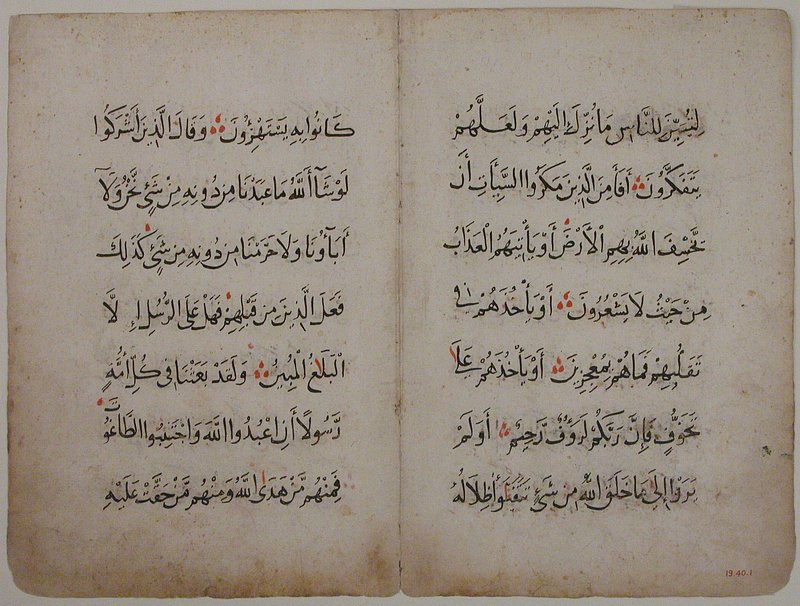 لِتُبَيِّنَ لِلنَّاسِ مَا نُزِّلَ اِلَيْهِمْ وَلَعَلَّهُمْ
يَتَفَكَّرُونَ أَفَأَمِنَ الَّذِينَ مَكَرُوا السَّيِّأَتِ أَنْ
يَخْسِفَ اللَّهُ بِهِمِ الْأَرْضَ أَوْ يَأْتِيَهُمُ الْعَذَابُ
مِنْ حَيْثُ لَا يَشْعُرُونَ أَوْ يَأْخُذَهُمْ فِي
تَقَلُّبِهِمْ فَمَا هُمْ بِمُعْجِزِينَ أَوْ يَأْخُذَهُمْ عَلَى
تَخَوُّفٍ فَإِنَّ رَبَّكُمْ لَرَؤُفٌ رَّحِيمٌ أَوَلَمْ
يَرَوْا إِلَى مَا خَلَقَ اللَّهُ مِنْ شَيْءٍ يَتَفَيَّؤُا ظِلَالُهُ
كَانُوا بِهِ يَسْتَهْزِؤُنَ وَقَالَ الَّذِينَ أَشْرَكُوا
لَوْ شَآءَ اللَّهُ مَا عَبَدْنَا مِنْ دُونِهِ مِنْ شَيْءٍ نَّحْنُ وَلَا
أَبَآؤُنَا وَلَا حَرَّمْنَا مِنْ دُونِهِ مِنْ شَيْءٍ كَذَلِكَ
فَعَلَ الَّذِينَ مِنْ قَبْلِهِمْ فَهَلْ عَلَى الرُّسُلِ إِلَّا
الْبَلَاغُ الْمُبِينُ وَلَقَدْ بَعَثْنَا فِي كُلِّ أُمَّةٍ
رَّسُولًا أَنِ اعْبُدُوا اللَّهَ وَاجْتَنِبُوا الطَّاغُوتَ
فَمِنْهُمْ مَّنْ هَدَى اللَّهُ وَمِنْهُمْ مَّنْ حَقَّتْ عَلَيْهِ
19.40.1